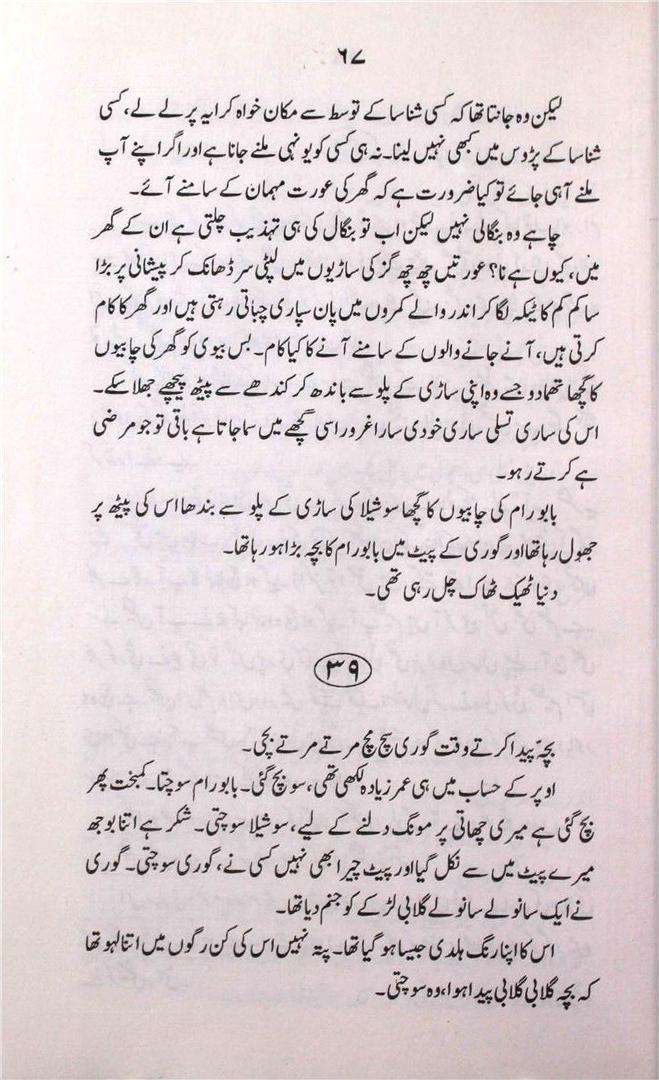 ۶۷
لیکن وہ جانتا تھا کہ کسی شناسا کے توسط سے مکان خواہ کرایہ پر لے لے، کسی
شناسا کے پڑوس میں کبھی نہیں لینا۔ نہ ہی کسی کو یونہی ملنے جانا ہے اور اگر اپنے آپ
ملنے آ ہی جائے تو کیا ضرورت ہے کہ گھر کی عورت مہمان کے سامنے آئے۔
چاہے وہ بنگالی نہیں لیکن اب تو بنگال کی ہی تہذیب چلتی ہے ان کے گھر
میں، کیوں ہے نا؟ عورتیں چھ چھ گز کی ساڑیوں میں لپٹی سر ڈھانک کر پیشانی پر بڑا
سا کم کم کا ٹیکہ لگا کر اندر والے کمروں میں پان سپاری چباتی رہتی ہیں اور گھر کا کام
کرتی ہیں، آنے جانے والوں کے سامنے آنے کا کیا کام۔ بس بیوی کو گھر کی چابیوں
کا گچھا تھما دو جسے وہ اپنی ساڑی کے پلو سے باندھ کر کندھے سے پیٹھ پیچھے جھلا سکے۔
اس کی ساری تسلی ساری خودی سارا غرور اسی گچھے میں سما جاتا ہے باقی تو جو مرضی
ہے کرتے رہو۔
بابو رام کی چابیوں کا گچھا سوشیلا کی ساڑی کے پلو سے بندھا اس کی پیٹھ پر
جھول رہا تھا اور گوری کے پیٹ میں بابو رام کا بچہ بڑا ہو رہا تھا۔
دنیا ٹھیک ٹھاک چل رہی تھی۔
۳۹
بچہّ پیدا کرتے وقت گوری سچ مچ مرتے مرتے بچی۔
اوپر کے حساب میں ہی عمر زیادہ لکھی تھی، سو بچ گئی۔ بابو رام سوچتا۔ کمبخت پھر
بچ گئی ہے میری چھاتی پر مونگ دلنے کے لیے، سوشیلا سوچتی۔ شکر ہے اتنا بوجھ
میرے پیٹ میں سے نکل گیا اور پیٹ چیرا بھی نہیں کسی نے، گوری سوچتی۔ گوری
نے ایک سانولے سانولے گلابی لڑکے کو جنم دیا تھا۔
اس کا اپنا رنگ ہلدی جیسا ہو گیا تھا۔ پتہ نہیں اس کی کن رگوں میں اتنا لہو تھا
کہ بچہ گلابی گلابی پیدا ہوا، وہ سوچتی۔